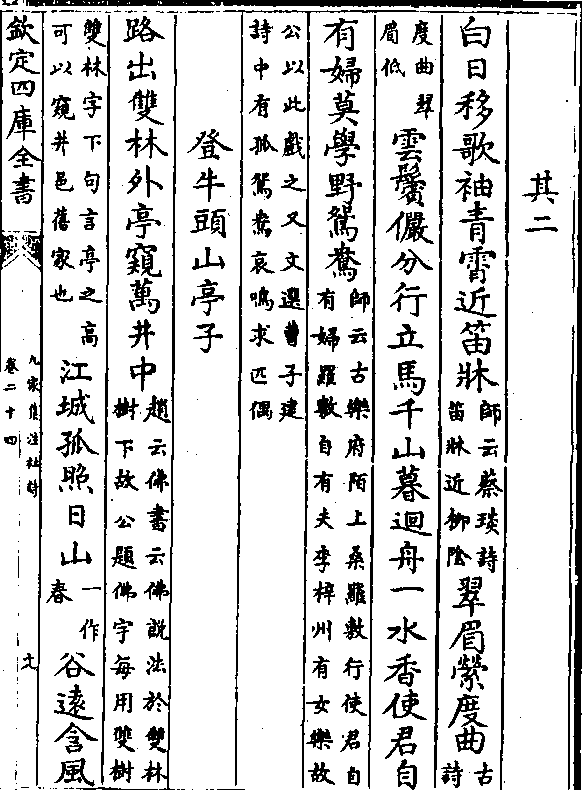 其二
白日移歌袖青霄近笛牀師云蔡琰詩笛牀近柳陰翠眉縈度曲古詩
度曲翠眉低雲鬢儼分行立馬千山暮迴舟一水香使君自
有婦莫學野鴛鴦師云古樂府陌上桑羅敷行使君自有婦羅敷自有夫李梓州有女樂故
公以此戲之又文選曹子建詩中有孤鴛鴦哀鳴求匹偶
登牛頭山亭子
路出雙林外亭窺萬井中趙云佛書云佛說法於雙林樹下故公題佛字每用雙樹
雙林字下句言亭之高可以窺井邑舊家也江城孤照日山一作春谷遠含風
欽定四庫全書
九家集注杜詩
卷二十四